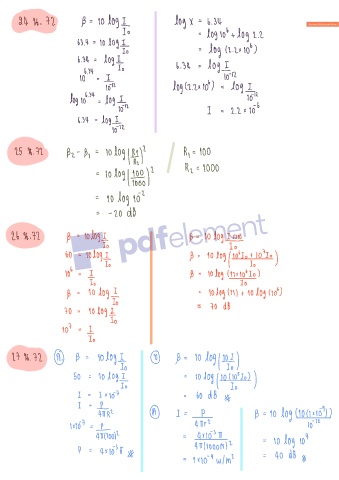 24 น.72
β = 10 log I/I₀
63.4 = 10 log I/I₀
6.34 = log I/I₀
10^6.34 = I/10⁻¹²
log 10^6.34 = log I/10⁻¹²
6.34 = log I/10⁻¹²
log X = 6.34
= log 10⁶ + log 2.2
= log (2.2×10⁶)
6.34 = log I/10⁻¹²
log (2.2×10⁶) = log I/10⁻¹²
I = 2.2×10⁻⁶
25 น.72
β₂ - β₁ = 10 log (R1/R2)²
= 10 log (100/1000)²
= 10 log 10⁻²
= -20 dB
R₁ = 100
R₂ = 1000
26 น.72
β = 10 log I/I₀
60 = 10 log I/I₀
10⁶ = I/I₀
β = 10 log I/I₀
70 = 10 log I/I₀
10⁷ = I/I₀
β = 10 log
β = 10 log (10⁶I₀ + 10⁷I₀/I₀)
β = 10 log (11×10⁶I₀/I₀)
= 10 log (11) + 10 log (10⁶)
= 70 dB
pdfelement
27 น.72
β = 10 log I/I₀
50 = 10 log I/I₀
I = 1×10⁻⁷
I = P/4πR²
1×10⁻⁷ = P/4π(100)²
P = 4×10⁻³ π
ข
β = 10 log (10 I/I₀)
= 10 log (10(10⁵I₀)/I₀)
= 60 dB
ค
I = P/4πr²
= 4×10⁻³ π/4π(1000)²
= 1×10⁻⁹ w/m²
β = 10 log (10(1×10⁻⁹)/10⁻¹²)
= 10 log 10⁴
= 40 dB